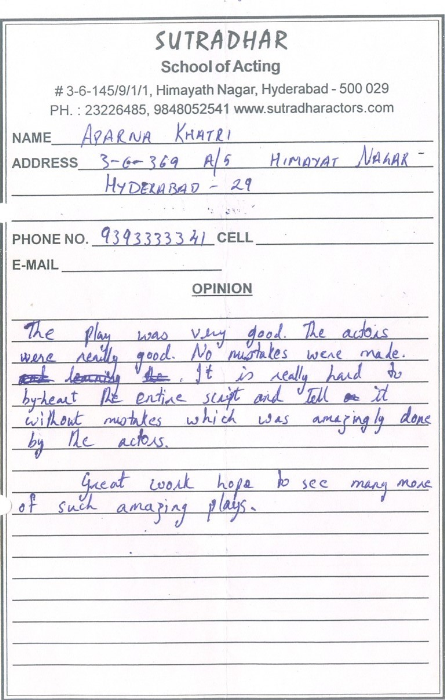 SUTRADHAR
School of Acting
# 3-6-145/9/1/1, Himayath Nagar, Hyderabad - 500 029
PH. : 23226485, 9848052541 www.sutradharactors.com
NAME APARNA KHATRI
ADDRESS 3-6-369 A/5 HIMAYAT NAGAR -
HYDERABAD - 29
PHONE NO. 9393333341 CELL
E-MAIL
OPINION
The play was very good. The actors
were really good. No mistakes were made.
and learning the. It is really hard to
by-heart the entire script and tell it
without mistakes which was amazingly done
by the actors.
Great work hope to see many more
of such amazing plays.